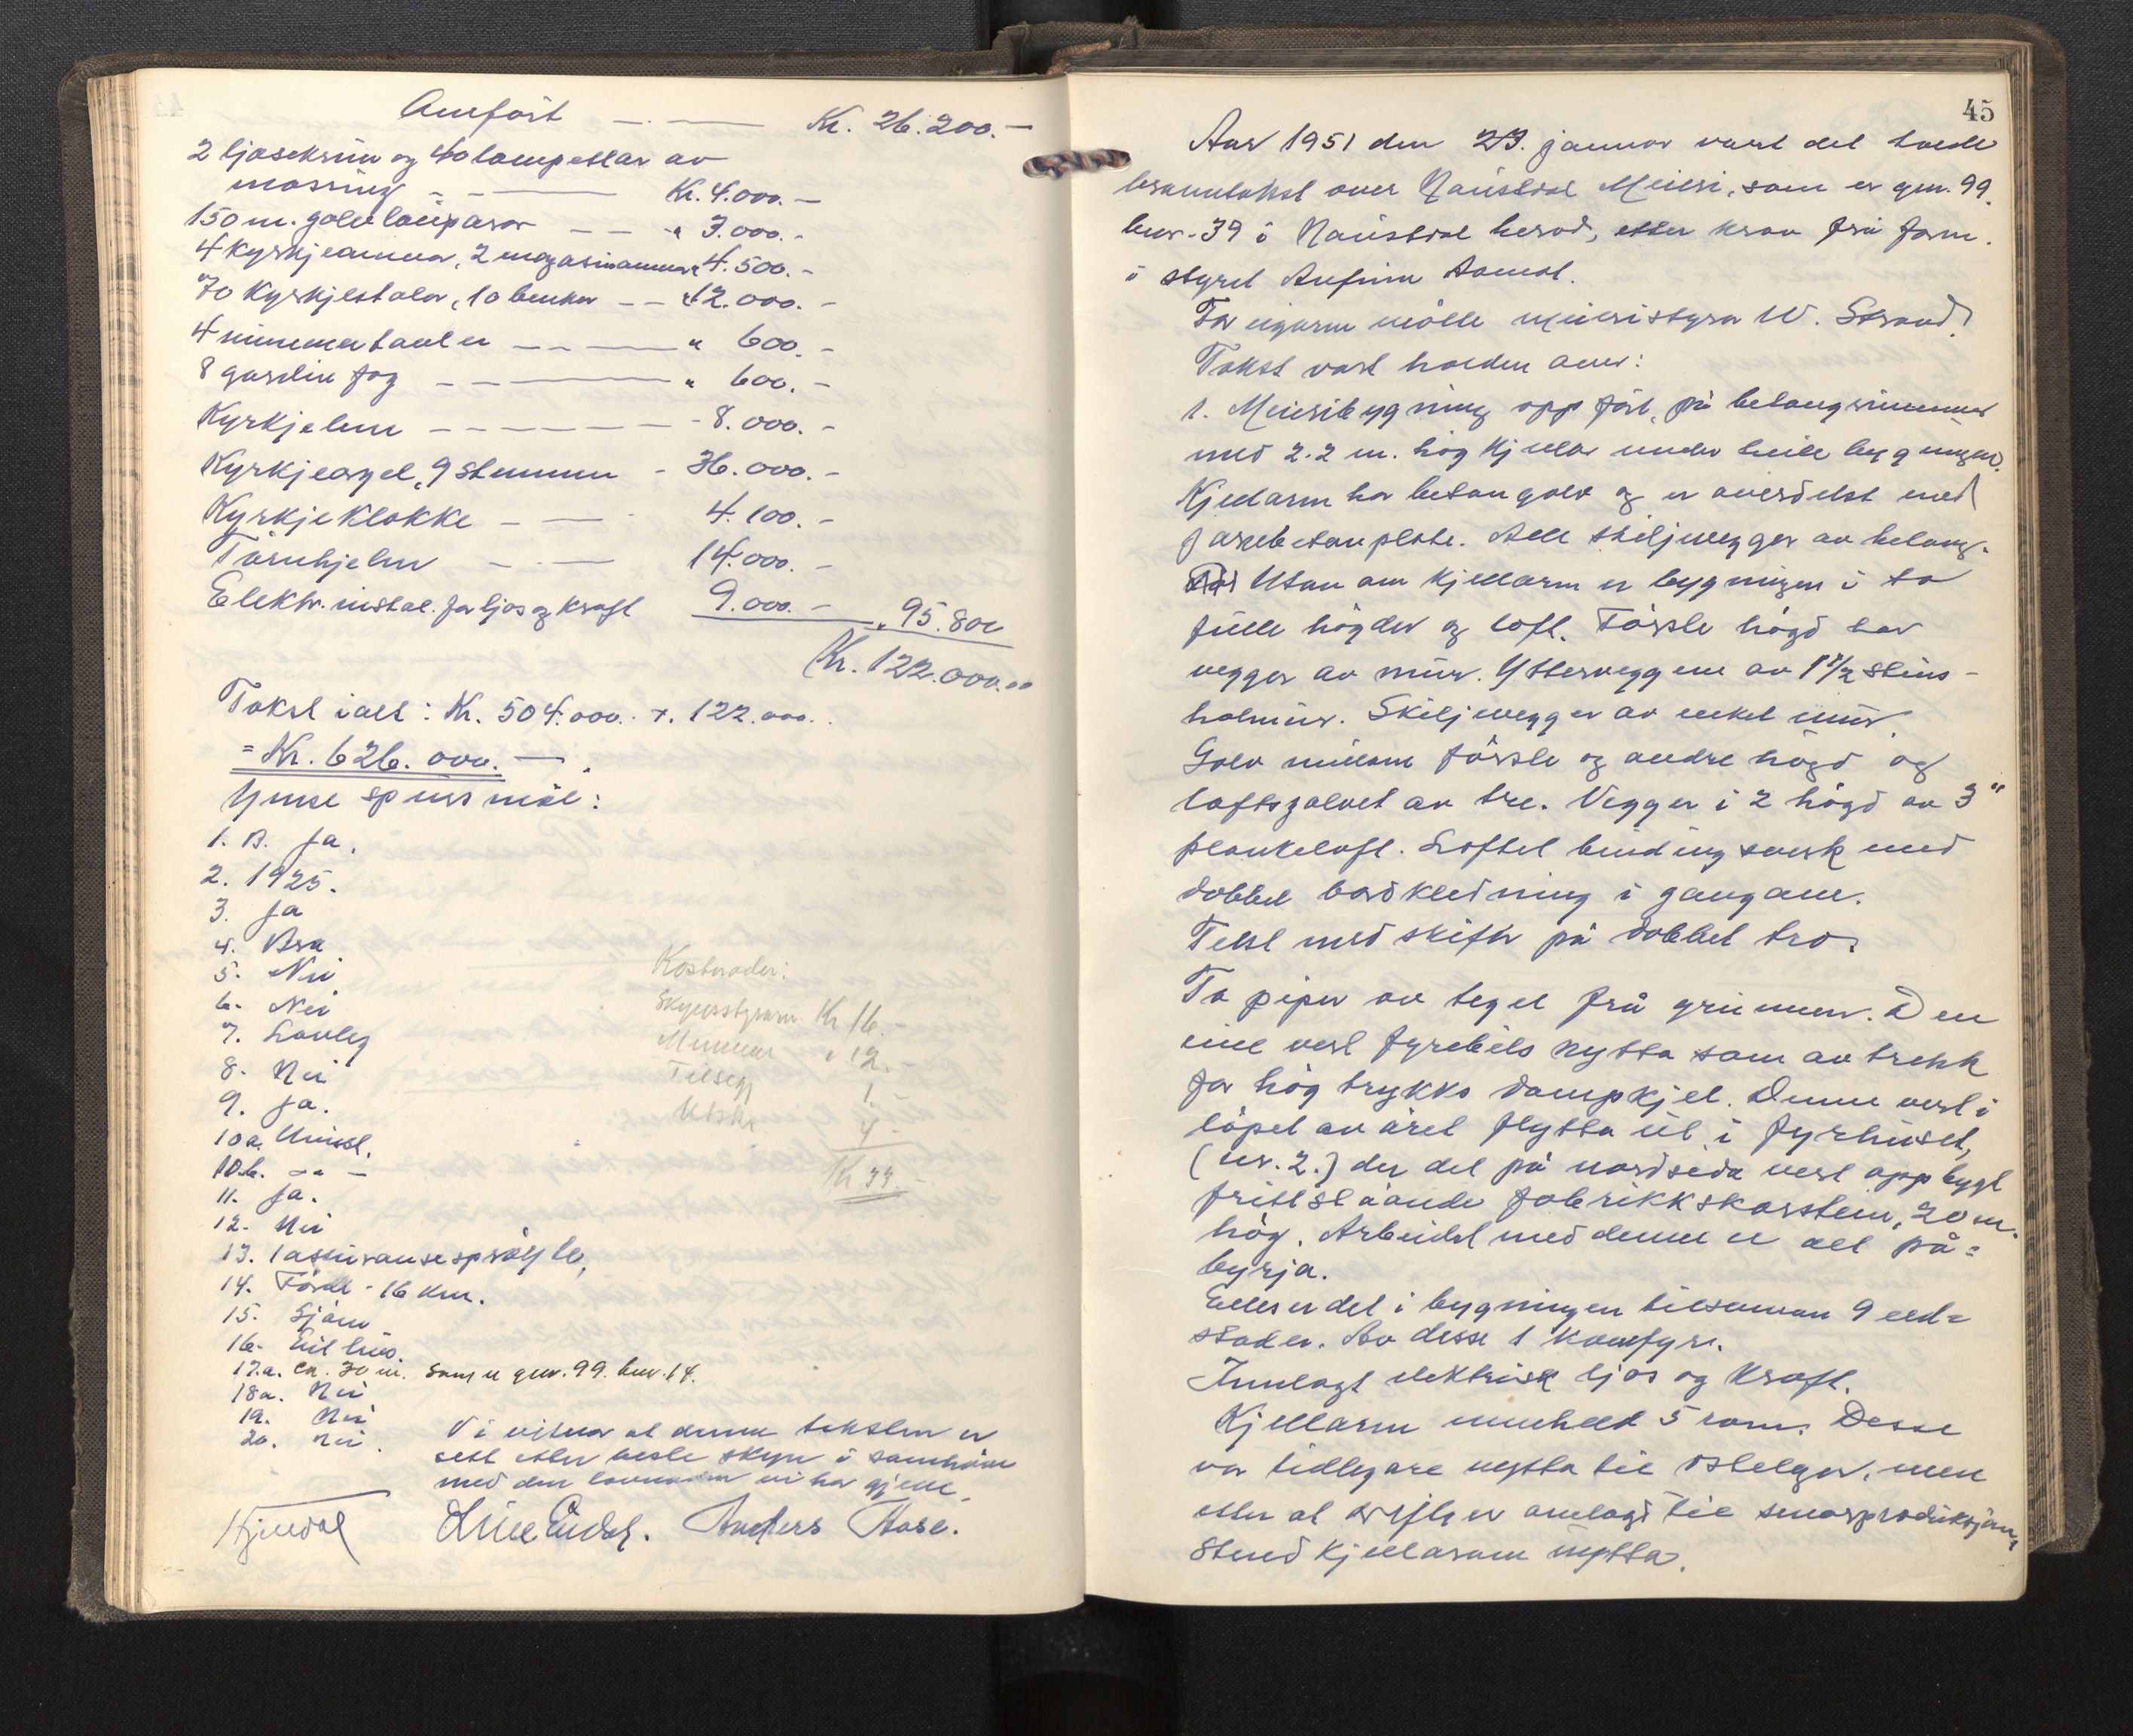 Amført — Kr. 26.200.—
2 ljosekrun og 40 lampettar av
messing — — Kr. 4.000.—
150 m. golvlauparar — — " 3.000.-
4 kyrkjeomnar, 2 magasinomnar " 4.500.-
70 kyrkjestolar, 10 benker — — " 12.000.-
4 nummertavler — — " 600.-
8 gardin fag — — " 600.-
Kyrkjelm — — — 8.000.-
Kyrkjeorgel, 9 stemmer - 36.000.-
Kyrkjeklokke — — 4.100.-
Tårnhjelm — — 14.000.-
Elektr. instal. for ljos og kraft 9.000.- " 95.800
Kr. 122.000.00
Takst ialt: Kr. 504.000. + 122.000.
= Kr. 626.000.—.
Ymse spursmål:
1. B. Ja.
2. 1925.
3. Ja
4. Bra
5. Nei
6. Nei
7. Lovleg
8. Nei
9. Ja.
10a. Umssl.
10.b. -"-
11. Ja.
12. Nei
13. 1 assuransesprøyte,
14. Førde - 16 km.
15. Sjøen
16. Eit hus
17.a. ca. 70 m. som er gnr. 99. bnr. 14.
18a. Nei
19. Nei
20. Nei.
Kostnader:
Skjønsstyraren Kr 16.-
Mennene " 12.-
Tilseg 1.-
Utskr. 4-
Kr 33.-
Vi vitnar at denne taksten er
sett etter beste skjøn i samhøve
med den lovnaden vi har gjeve.
Hjelldal Anders Aase.
45
Aar 1951 den 23. januar vart det halde
branntakst over Naustdal Meieri, som er gnr. 99.
bnr. 39 i Naustdal herad, etter krav frå form.
i styret Anfinn Aamot.
For eigaren møtte meieristyrar W. Strand.
Takst vart halden over:
1. Meieribygning oppført på betongrunnmur
med 2.2 m. høg kjellar under heile bygningen.
Kjellaren har betongolv og er overdekt med
jarnbetonplate. Alle skiljevegger av betong.
Utan om kjellaren er bygningen i to
fulle høgder og loft. Første høgd har
vegger av mur. Ytterveggene av 1 1/2 steins
holmur. Skiljevegger av enkel mur.
Golv millom første og andre høgd og
loftsgolvet av tre. Vegger i 2 høgd av 3"
plankeloft. Loftet bindingsverk med
dobbel bordkledning i gangane.
Tekt med skifer på dobbel tro.
To piper av tegel frå grunnen. Den
eine vert fyrebils nytta som avtrekk
for høgtrykks dampkjel. Denne vert i
løpet av året flytta ut i fyrhuset,
(nr. 2.) der det på nordsida vert oppbygt
frittståande fabrikkskorstein, 20 m.
høg. Arbeidet med denne er alt på=
byrja.
Elles er det i bygningen tilsaman 9 eld=
stader. Av desse 1 komfyr.
Innlagt elektrisk ljos og kraft.
Kjellaren inneheld 5 rom. Desse
var tidlegare nytta til ostelager, men
etter at drifta er omlagt til smørproduksjon,
stend kjellarane unytta.